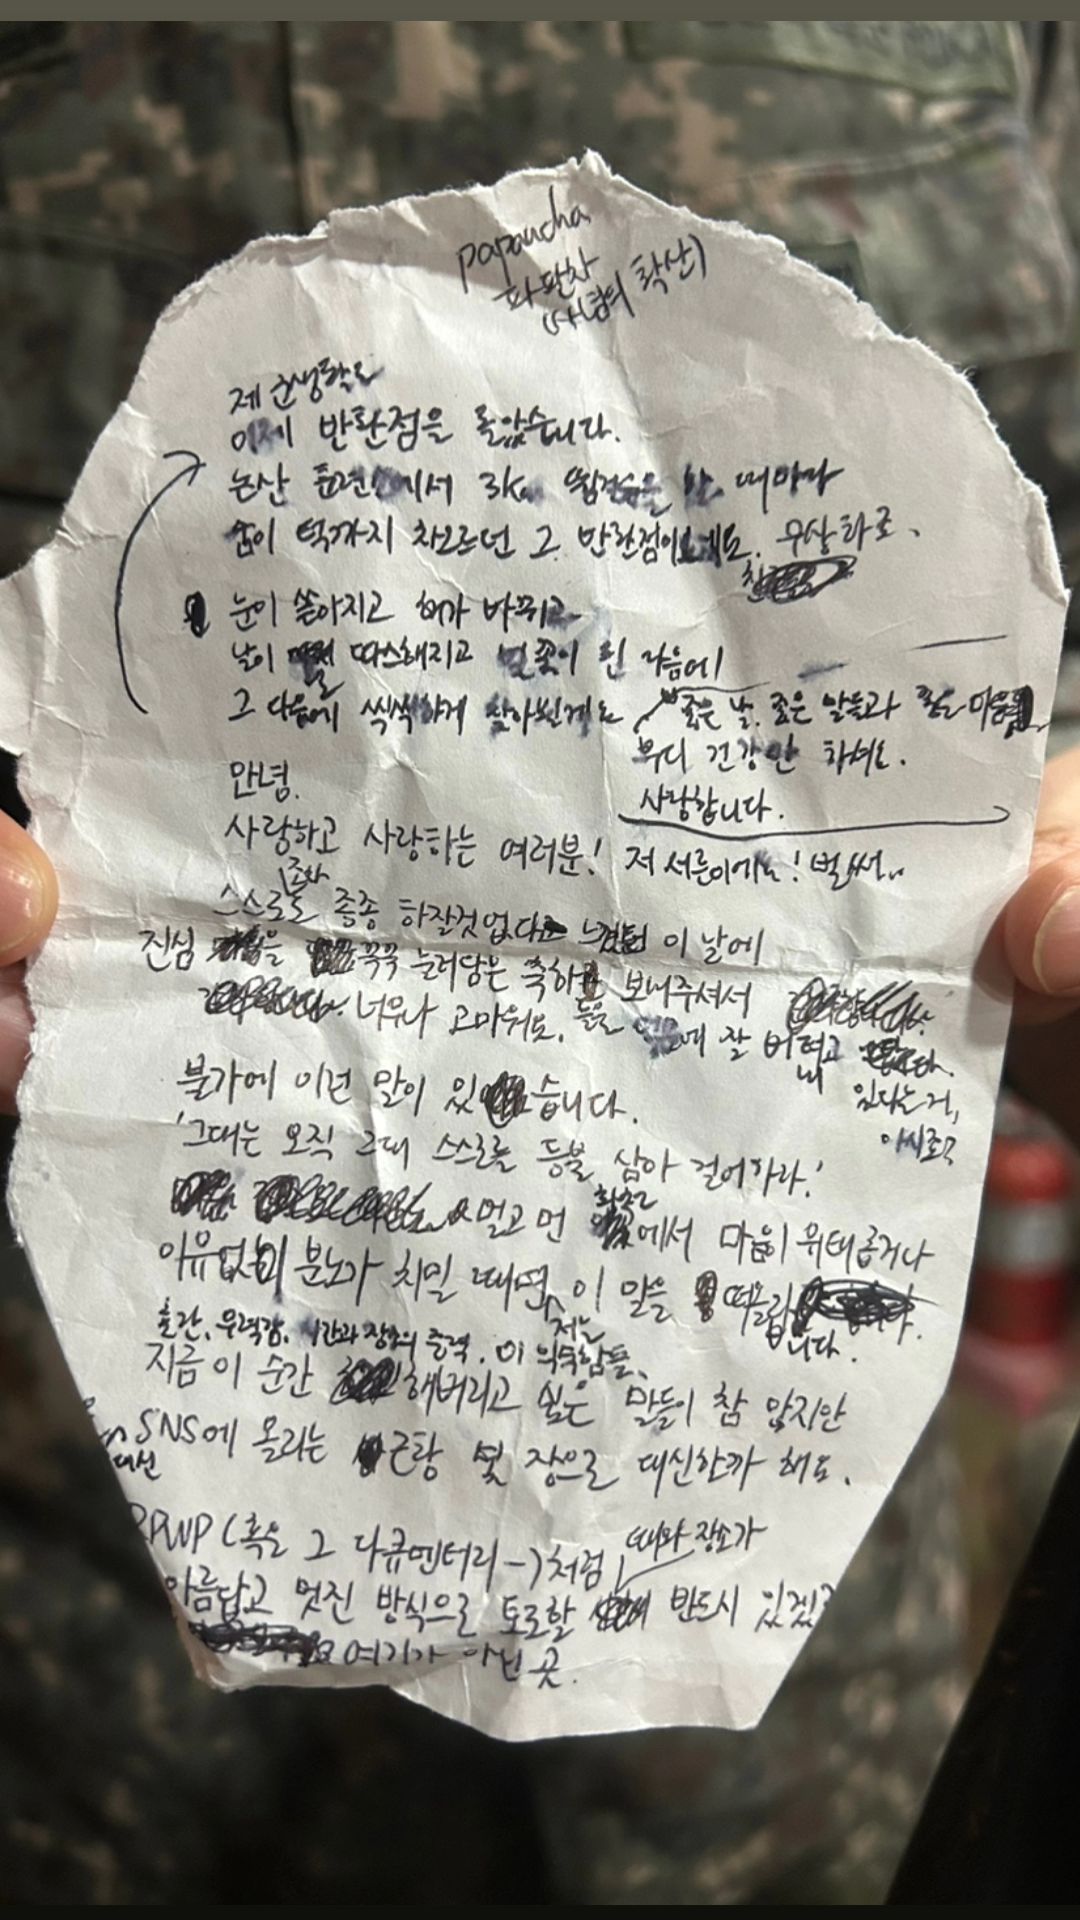 papancha
파판차
(사념의 확산)
제 군생활도
이제 반환점을 돌았습니다.
논산 훈련소에서 3km 뜀걸음을 할 때마다
숨이 턱까지 차오르던 그 반환점이 무상하죠.
눈이 쏟아지고 해가 바뀌고
날이 따스해지고 벚꽃이 핀 다음에
그 다음에 씩씩하게 찾아뵐게요
좋은 날, 좋은 말들과 좋은 마음
부디 건강만 하셔요.
사랑합니다.
안녕.
사랑하고 사랑하는 여러분! 저 서른이에요! 벌써..
조차
스스로도 종종 하잘것없다 느꼈던 이 날에
진심을 꾹꾹 눌러담은 축하 보내주셔서
너무나 고마워요. 늘 잘 버텨
내고
있다는 거,
아시죠?
불가에 이런 말이 있습니다.
'그대는 오직 그대 스스로를 등불 삼아 걸어가라.'
화촌
멀고 먼 에서 마음이 위태롭거나
이유없이 분노가 치밀 때면, 저는 이 말을 떠올립
니다.
혼란, 무력감, 시간과 장소의 중력, 이 의뭉함들,
지금 이 순간 해버리고 싶은 말들이 참 많지만
SNS에 올리는 근황 몇 장으로 대신할까 해요.
대신
RPWP (혹은 그 다큐멘터리-)처럼
때와 장소가
아름답고 멋진 방식으로 토로할 반드시 있겠
여기가 아닌 곳.